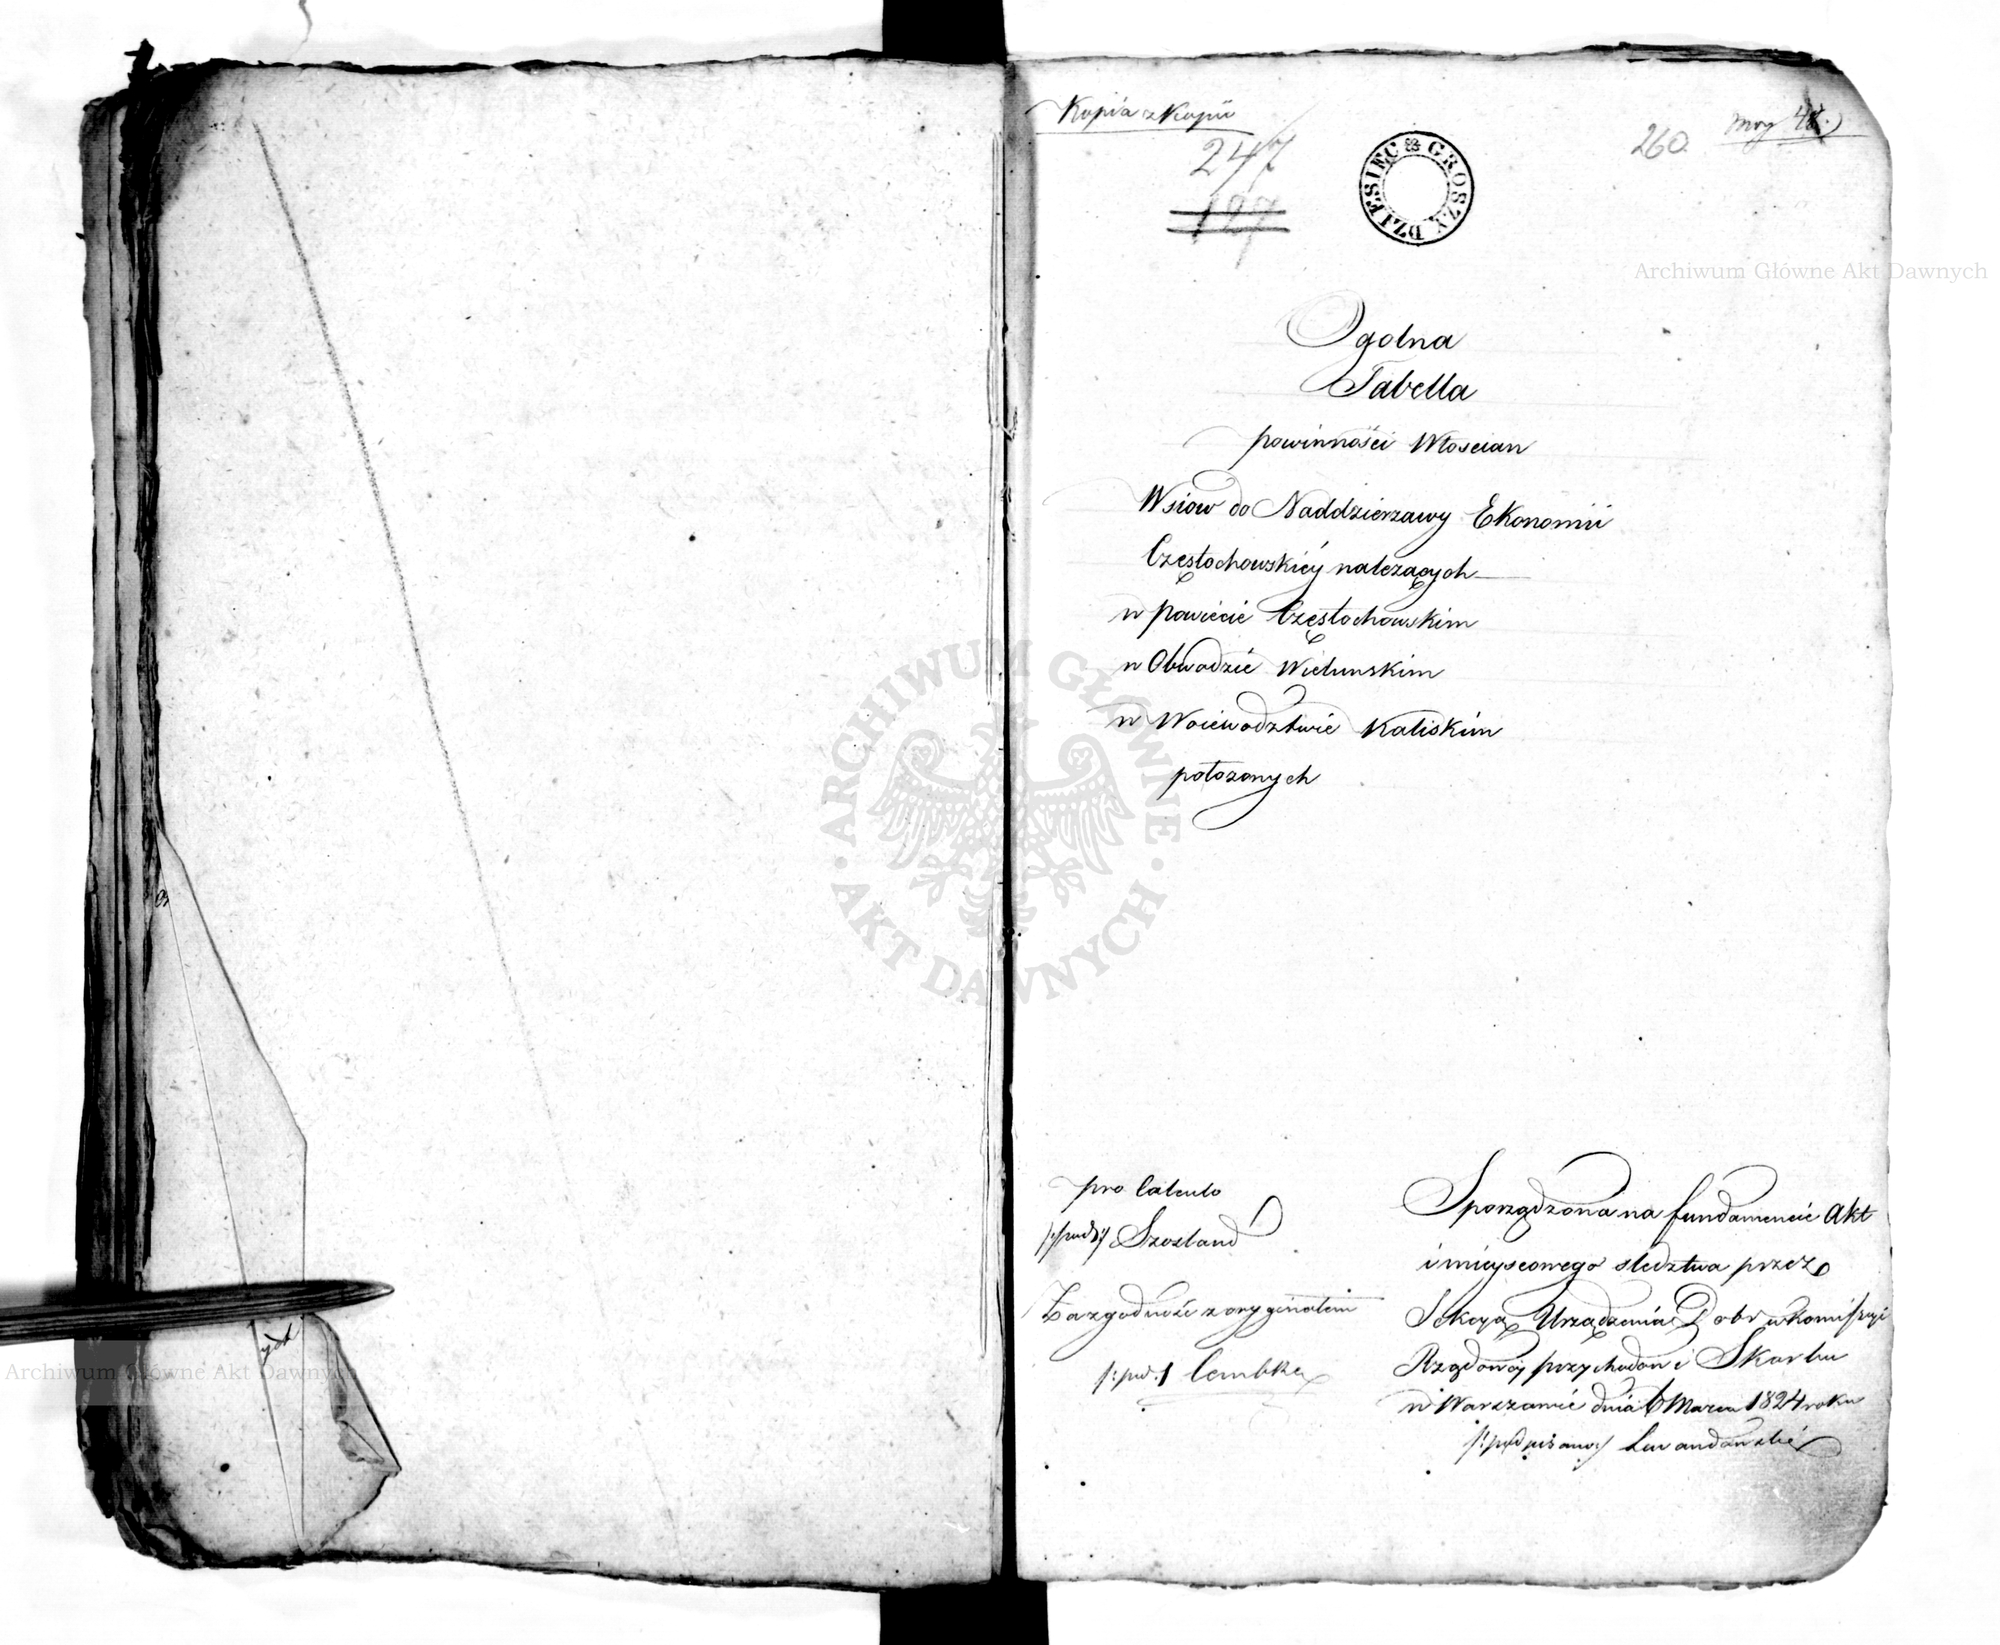 Kopia z Kopii
247
127
DZIESIEC GROSZY
260.
Archiwum Główne Akt Dawnych
Ogolna
Tabella
powinności Włoscian
Wsiow do Naddzierzawy Ekonomii
Częstochowskiéy nalezących
w Powiecie Częstochowskim
w Obwodzie Wielunskim
w Woiewodztwie Kaliskim
położonych
ARCHIWUM GŁÓWNE AKT DAWNYCH
pro Calculo
/:podp:/ Szostand
Za zgodność z oryginałem
/:pod:/ Cembka
Sporządzona na fundamencie Akt
i mieyscowego sledztwa przez
Sekcyą Urządzenia Dobr w Kommissyi
Rządowéy przychodow i Skarbu
w Warszawie dnia 6 Marca 1824 roku
/:podpisano:/ Lewandowski
ych
Archiwum Główne Akt Dawnych